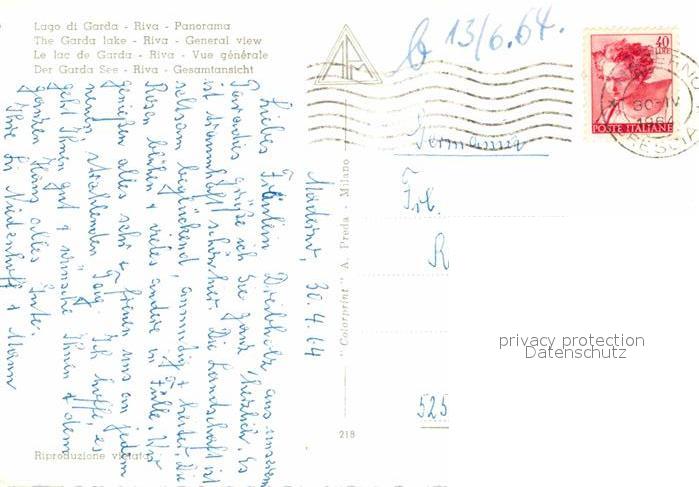 Lago di Garda - Riva - Panorama
The Garda lake - Riva - General view
Le lac de Garda - Riva - Vue générale
Der Garda See - Riva - Gesamtansicht
b 13/6.64.
40
LIRE
POSTE ITALIANE
30-IV
1964
Germania
Frl.
R
525
privacy protection
Datenschutz
"Colorprint" A. Preda - Milano
218
Riproduzione vietata
Maderno, 30.4.64
Liebes Fräulein aus unserem
Paradies grüße ich Sie ganz herzlich. Es
ist traumhaft schön hier. Die Landschaft ist
seltsam beglückend, anmutig + heiter. Die
Rosen blühen + vieles andere in Fülle. Wir
genießen alles sehr + freuen uns an jedem
neuen, strahlenden Tag. Ich hoffe, es
geht Ihnen gut + wünsche Ihnen + dem
ganzen Haus alles Gute.
Ihre + Mann